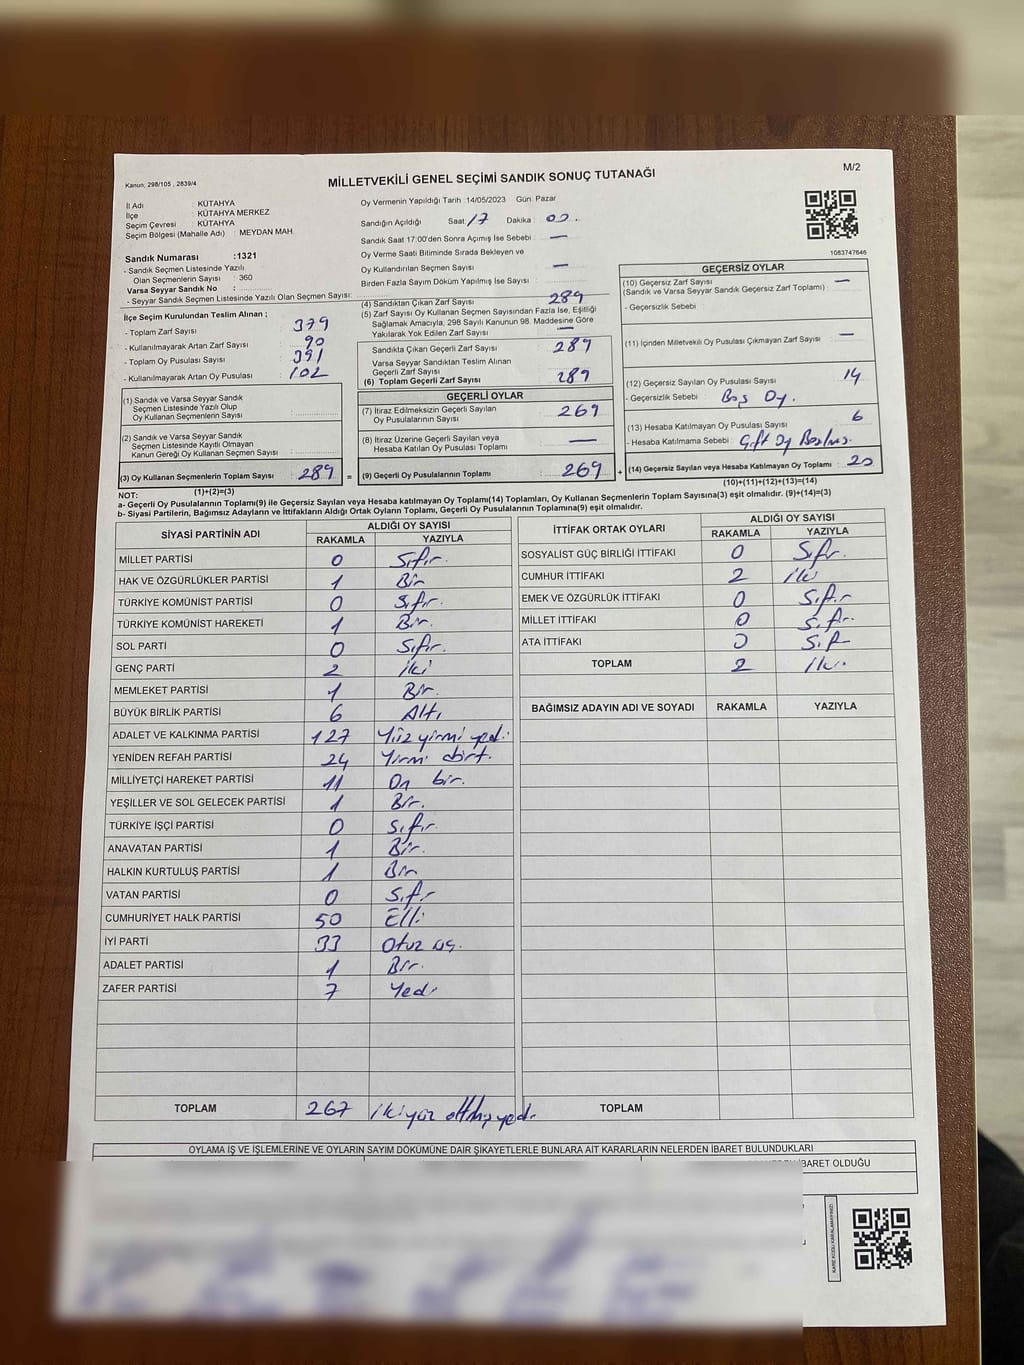 M/2
Kanun; 298/105 , 2839/4
MİLLETVEKİLİ GENEL SEÇİMİ SANDIK SONUÇ TUTANAĞI
İl Adı : KÜTAHYA
İlçe : KÜTAHYA MERKEZ
Seçim Çevresi : KÜTAHYA
Seçim Bölgesi (Mahalle Adı) : MEYDAN MAH.
Sandık Numarası :1321
- Sandık Seçmen Listesinde Yazılı
Olan Seçmenlerin Sayısı : 360
Varsa Seyyar Sandık No :
- Seyyar Sandık Seçmen Listesinde Yazılı Olan Seçmen Sayısı:
İlçe Seçim Kurulundan Teslim Alınan ;
- Toplam Zarf Sayısı : 379
- Kullanılmayarak Artan Zarf Sayısı : 90
- Toplam Oy Pusulası Sayısı : 391
- Kullanılmayarak Artan Oy Pusulası : 102
(1) Sandık ve Varsa Seyyar Sandık
Seçmen Listesinde Yazılı Olup
Oy Kullanan Seçmenlerin Sayısı :
(2) Sandık ve Varsa Seyyar Sandık
Seçmen Listesinde Kayıtlı Olmayan
Kanun Gereği Oy Kullanan Seçmen Sayısı :
(3) Oy Kullanan Seçmenlerin Toplam Sayısı : 289 =
(1)+(2)=(3)
Oy Vermenin Yapıldığı Tarih :14/05/2023 Gün: Pazar
Sandığın Açıldığı Saat: 17 Dakika : 00.
Sandık Saat 17:00'den Sonra Açımış İse Sebebi : —
Oy Verme Saati Bitiminde Sırada Bekleyen ve
Oy Kullandırılan Seçmen Sayısı : —
Birden Fazla Sayım Döküm Yapılmış İse Sayısı :
(4) Sandıktan Çıkan Zarf Sayısı : 289
(5) Zarf Sayısı Oy Kullanan Seçmen Sayısından Fazla İse, Eşitliği
Sağlamak Amacıyla, 298 Sayılı Kanunun 98. Maddesine Göre
Yakılarak Yok Edilen Zarf Sayısı : —
Sandıkta Çıkan Geçerli Zarf Sayısı : 289
Varsa Seyyar Sandıktan Teslim Alınan
Geçerli Zarf Sayısı :
(6) Toplam Geçerli Zarf Sayısı : 289
GEÇERLİ OYLAR
(7) İtiraz Edilmeksizin Geçerli Sayılan
Oy Pusulalarının Sayısı : 269
(8) İtiraz Üzerine Geçerli Sayılan veya
Hesaba Katılan Oy Pusulası Toplamı : —
(9) Geçerli Oy Pusulalarının Toplamı : 269 +
1083747646
GEÇERSİZ OYLAR
(10) Geçersiz Zarf Sayısı : —
(Sandık ve Varsa Seyyar Sandık Geçersiz Zarf Toplamı) :
- Geçersizlik Sebebi :
(11) İçinden Milletvekili Oy Pusulası Çıkmayan Zarf Sayısı : —
(12) Geçersiz Sayılan Oy Pusulası Sayısı : 14
- Geçersizlik Sebebi : Boş Oy.
(13) Hesaba Katılmayan Oy Pusulası Sayısı : 6
- Hesaba Katılmama Sebebi : Çift Oy
(14) Geçersiz Sayılan veya Hesaba Katılmayan Oy Toplamı : 20
(10)+(11)+(12)+(13)=(14)
NOT:
a- Geçerli Oy Pusulalarının Toplamı(9) ile Geçersiz Sayılan veya Hesaba katılmayan Oy Toplamı(14) Toplamları, Oy Kullanan Seçmenlerin Toplam Sayısına(3) eşit olmalıdır. (9)+(14)=(3)
b- Siyasi Partilerin, Bağımsız Adayların ve İttifakların Aldığı Ortak Oyların Toplamı, Geçerli Oy Pusulalarının Toplamına(9) eşit olmalıdır.
SİYASİ PARTİNİN ADI ALDIĞI OY SAYISI
RAKAMLA YAZIYLA
MİLLET PARTİSİ 0 Sıfır.
HAK VE ÖZGÜRLÜKLER PARTİSİ 1 Bir
TÜRKİYE KOMÜNİST PARTİSİ 0 Sıfır.
TÜRKİYE KOMÜNİST HAREKETİ 1 Bir.
SOL PARTİ 0 Sıfır.
GENÇ PARTİ 2 İki
MEMLEKET PARTİSİ 1 Bir.
BÜYÜK BİRLİK PARTİSİ 6 Altı
ADALET VE KALKINMA PARTİSİ 127 Yüz yirmi yedi.
YENİDEN REFAH PARTİSİ 24 Yirmi dört.
MİLLİYETÇİ HAREKET PARTİSİ 11 On bir.
YEŞİLLER VE SOL GELECEK PARTİSİ 1 Bir.
TÜRKİYE İŞÇİ PARTİSİ 0 Sıfır.
ANAVATAN PARTİSİ 1 Bir.
HALKIN KURTULUŞ PARTİSİ 1 Bir
VATAN PARTİSİ 0 Sıfır
CUMHURİYET HALK PARTİSİ 50 Elli
İYİ PARTİ 33 Otuz üç.
ADALET PARTİSİ 1 Bir.
ZAFER PARTİSİ 7 Yedi
TOPLAM 267 İkiyüz altmış yedi.
İTTİFAK ORTAK OYLARI ALDIĞI OY SAYISI
RAKAMLA YAZIYLA
SOSYALİST GÜÇ BİRLİĞİ İTTİFAKI 0 Sıfır.
CUMHUR İTTİFAKI 2 İki
EMEK VE ÖZGÜRLÜK İTTİFAKI 0 Sıfır
MİLLET İTTİFAKI 0 Sıfır.
ATA İTTİFAKI 0 Sıf
TOPLAM 2 İki.
BAĞIMSIZ ADAYIN ADI VE SOYADI RAKAMLA YAZIYLA
TOPLAM
OYLAMA İŞ VE İŞLEMLERİNE VE OYLARIN SAYIM DÖKÜMÜNE DAİR ŞİKAYETLERLE BUNLARA AİT KARARLARIN NELERDEN İBARET BULUNDUKLARI
İBARET OLDUĞU
KARE KODU KARALAMAYINIZ!